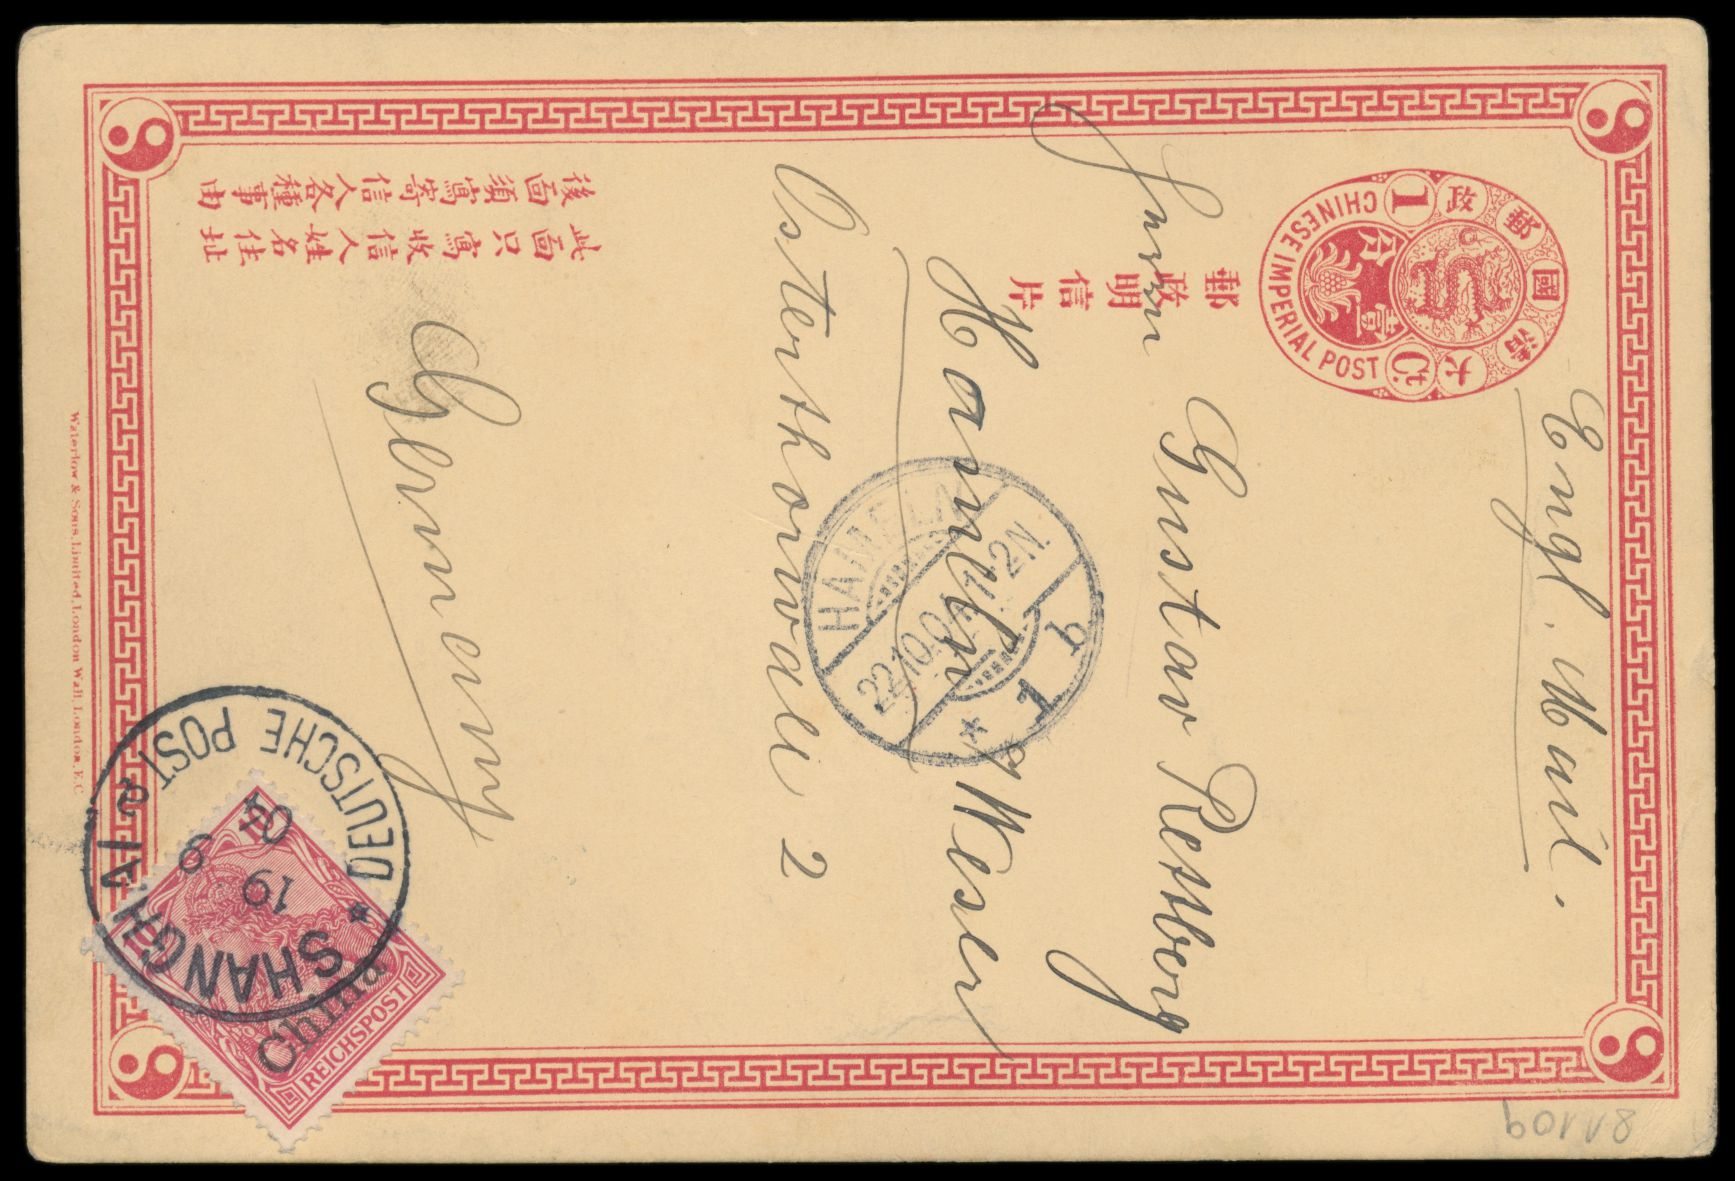 大清國郵政
CHINESE IMPERIAL POST
1 Ct.
壹分
郵政明信片
此面只寫收信人姓名住址
後面須寫寄信人各種事由
Engl. Mail.
Herrn
Gustav Rettberg
Hameln a/Weser
Osterthorwall 2
Germany
HAMELN
22.10.04. 1-2N.
* 1 b
SHANGHAI a
DEUTSCHE POST
*
19
9
04
China
REICHSPOST
10
Waterlow & Sons, Limited, London Wall, London, E.C.